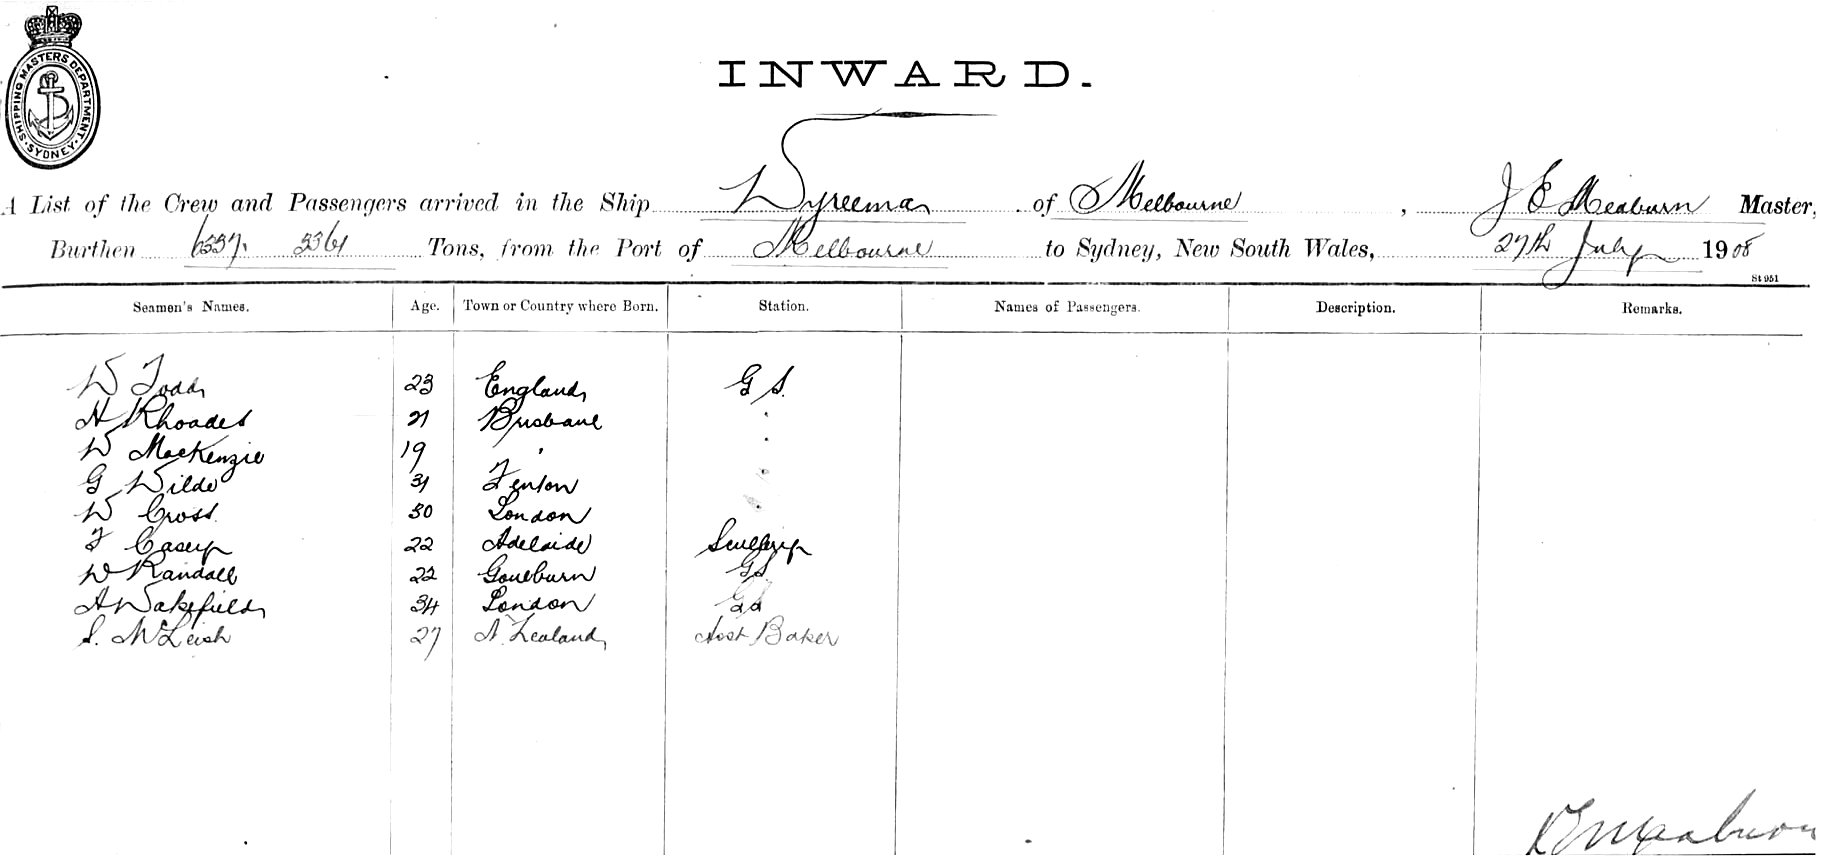 SHIPPING MASTERS DEPARTMENT
SYDNEY
INWARD.
A List of the Crew and Passengers arrived in the Ship Wyreema of Melbourne, J E Meaburn Master,
Burthen 6337. 3361 Tons, from the Port of Melbourne to Sydney, New South Wales, 27th July 1908
St 951
Seamen's Names. Age. Town or Country where Born. Station. Names of Passengers. Description. Remarks.
W Todd 23 England G S.
H Rhoades 21 Brisbane "
W MacKenzie 19 " "
G Wilde 31 Fenton "
W Cross 30 London "
F Casey 22 Adelaide
W Randall 22 Goulburn GS
A Wakefield 34 London GS
S. McLeish 27 N. Zealand Asst Baker
J E Meaburn